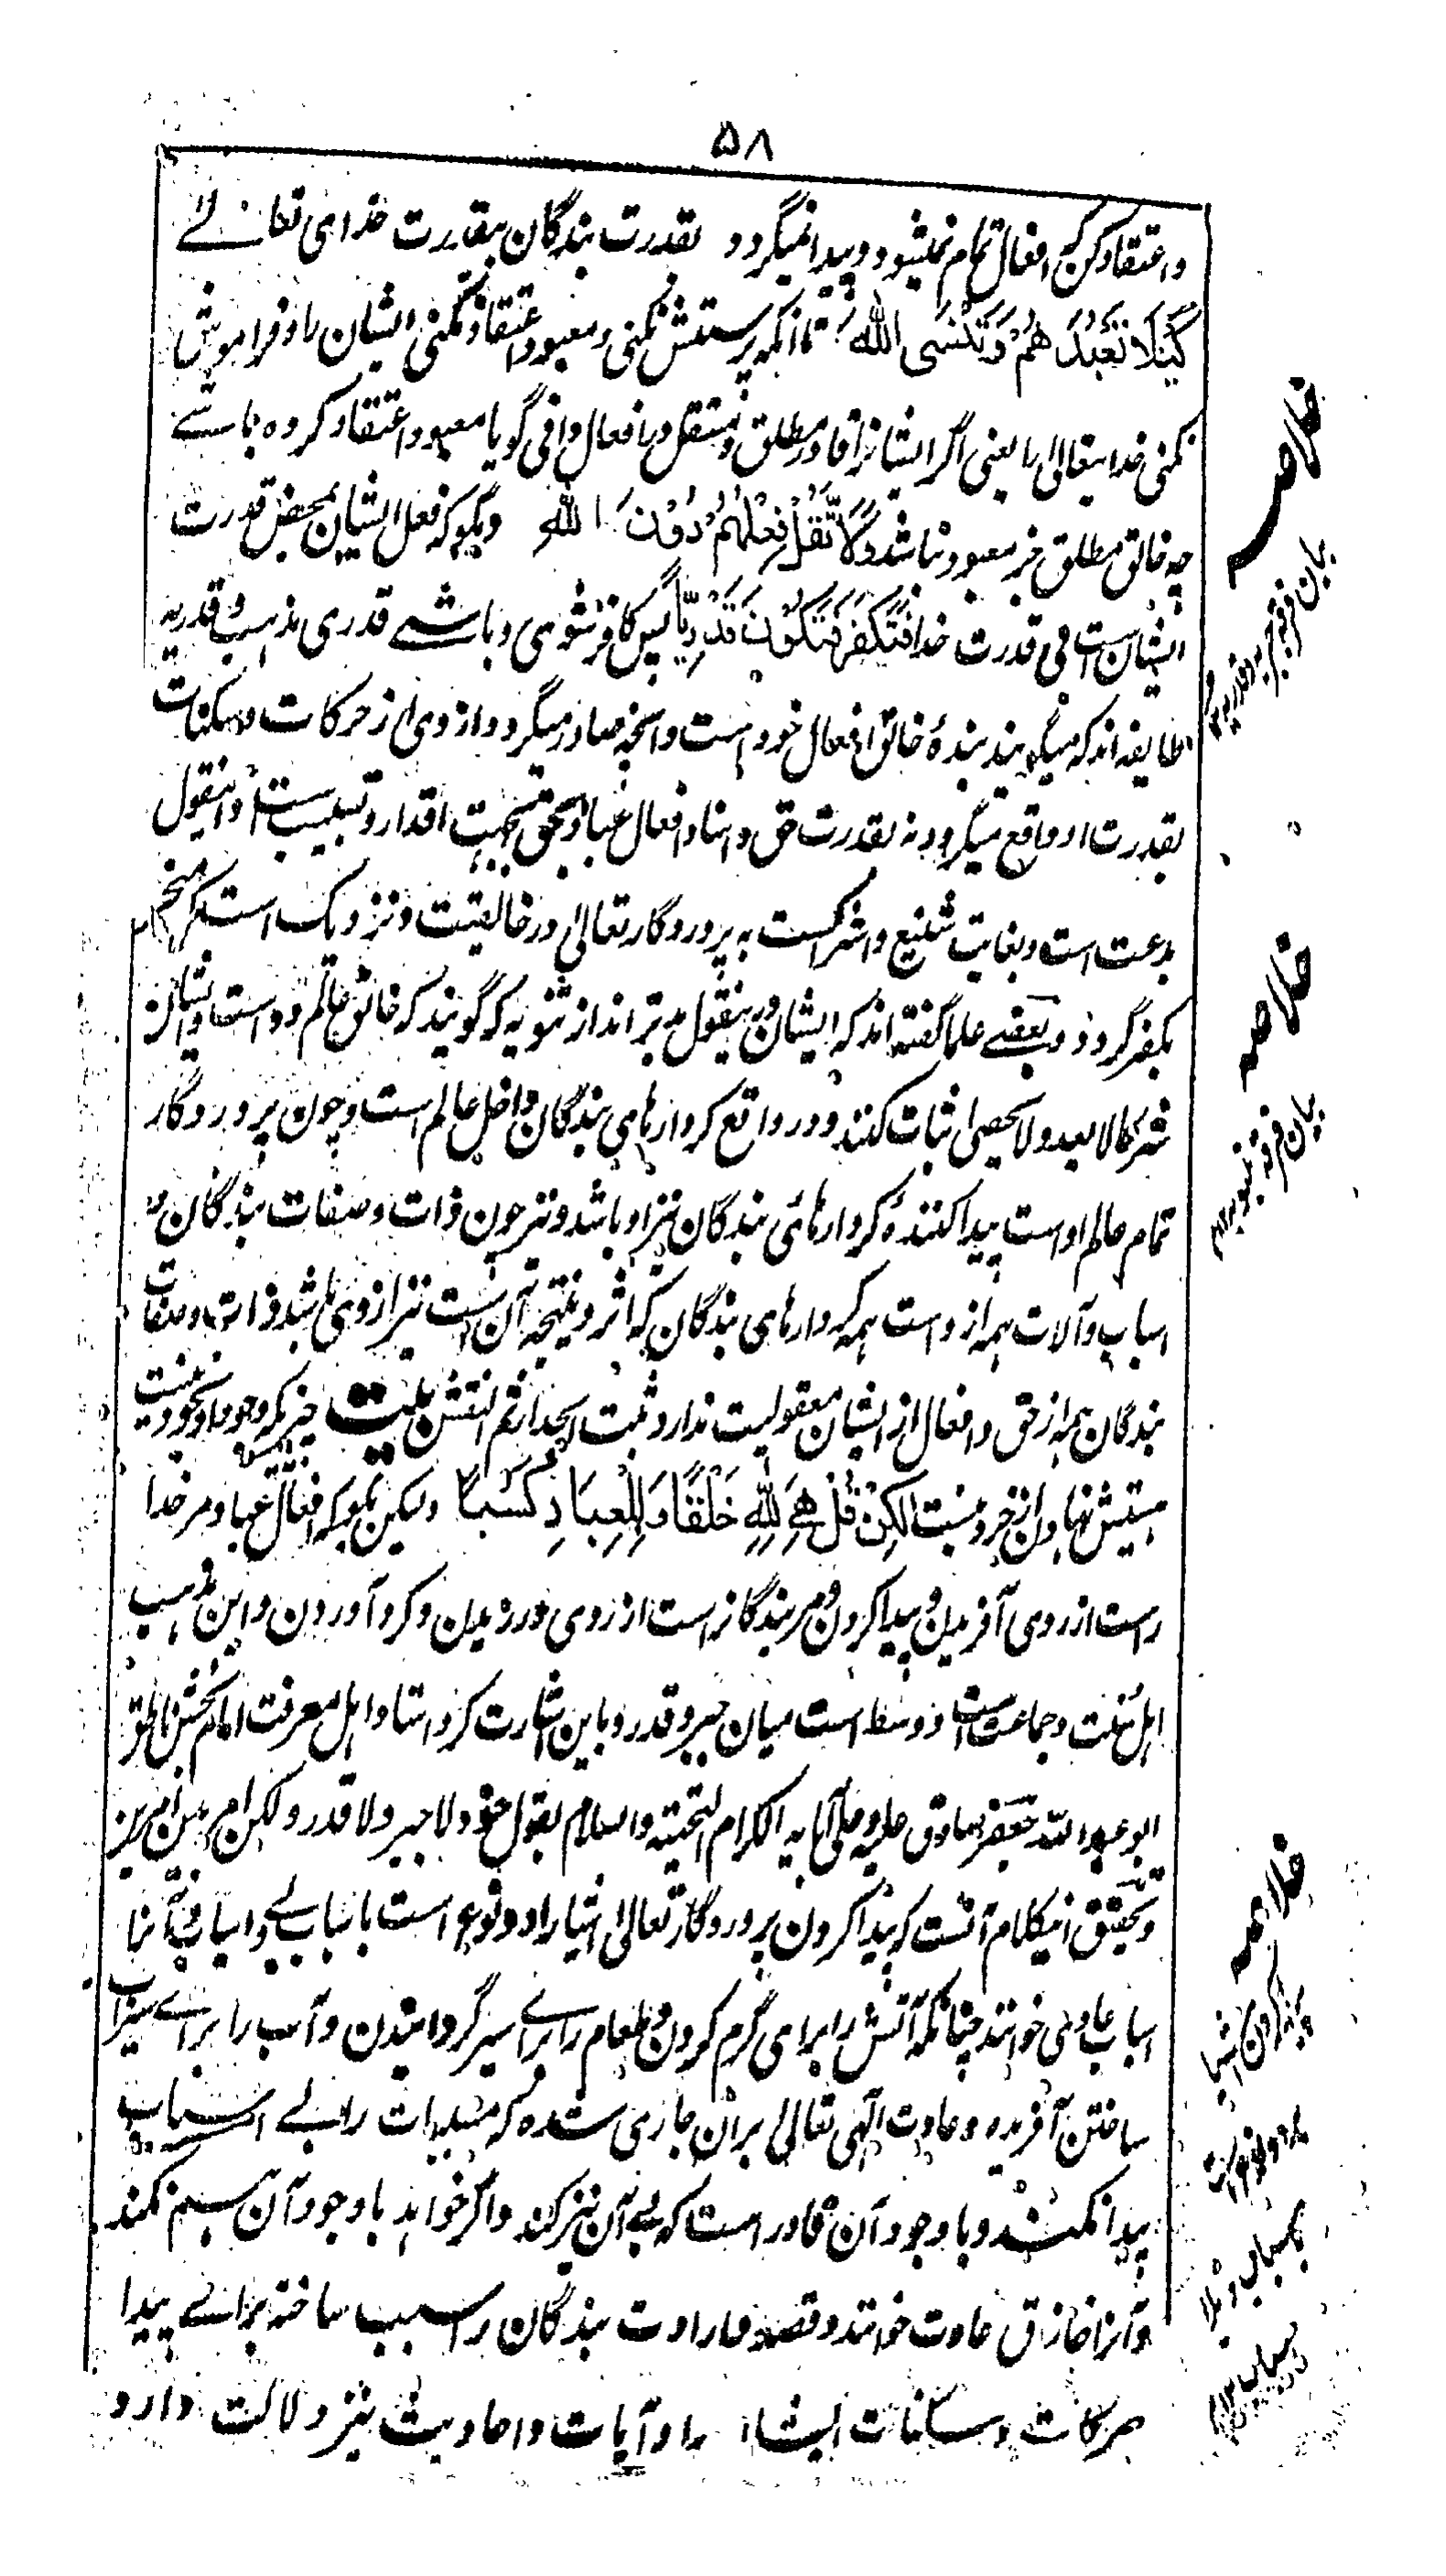 ۵۸
و اعتقاد کن که افعال تمام نمیشود و پیدا نمیگردد بقدرت بندگان بیقدرت خدای تعالے
كَيْلَا تَعْبُدَهُمْ وَتَنْسَى اللهَ تا آنکه پرستش نکنی و معبود اعتقاد نکنی ایشان را و فراموش
نکنی خدایتعالی را یعنی اگر ایشانرا قادر مطلق و مستقل در افعال دانی گویا معبود اعتقاد کرده باشے
چه خالق مطلق جز معبود نباشد وَلَا تَقُلْ فِعْلُهُمْ دُوْنَ اللهِ و مگو که فعل ایشان بمحض قدرت
ایشان ست بی قدرت خدا فَتَكْفُرَ فَتَكُوْنَ قَدَرِيًّا پس کافر شوی و باشے قدری مذهب و قدریه
طایفه اند که میگویند بندهٔ خالق افعال خود است و آنچه صادر میگردد از وی از حرکات و سکنات
بقدرت او واقع میگردد نه بقدرت حق و اسناد افعال عباد بحق بجهت اقدار و تسبیب است و اینقول
بدعت است و بغایت شنیع و اشراکست به پروردگار تعالی در خالقیت و نزدیک است که منجر
بکفر گردد و بعضے علما گفته اند که ایشان درینقول بدتر اند از ثنویه که گویند که خالق عالم دو است و ایشان
شرکا لا یعد و لا یحصی اثبات کنند و در واقع کردارهای بندگان داخل عالم است و چون پروردگار
تمام عالم اوست پیدا کنندهٔ کردارهای بندگان نیز او باشد و نیز چون ذات و صفات بندگان و
اسباب و آلات همه از وست همه کردارهای بندگان که اثر و نتیجه آن است نیز از وی باشد ذات و صفات
بندگان همه از حق و افعال از ایشان معقولیت ندارد ثبت الجدار ثم انقش بیت چیزیکه وجود او بخود نیست
هستیش نهادن از خرد نیست لٰكِنْ قُلْ هِيَ لِلّٰهِ خَلْقًا وَلِلْعِبَادِ كَسْبًا و لیکن بگو که افعال عباد مر خدا
راست از روی آفریدن و پیدا کردن و مر بندگانراست از روی ورزیدن و کرد آوردن و این مذهب
اهل سنت و جماعت است و وسط است میان جبر و قدر و باین اشارت کرد استاد اهل معرفت امام بحق ناطق
ابو عبد الله جعفر صادق علیه و علی آبایه الکرام التحیته و السلام بقول خود لا جبر و لا قدر و لکن امر بین امرین
و تحقیق اینکلام آنست که پیدا کردن پروردگار تعالی اشیا را دو نوع است با سباب و بے اسباب و آنرا
اسباب عادی خوانند چنانکه آتش را برای گرم کردن و طعام را برای سیر گردانیدن و آب را براے سیراب
ساختن آفریده و عادت الهی تعالی بران جاری شده که مسببات را بے اسباب
پیدا نکند و با وجود آن قادر است که بے آن نیز کند و اگر خواهد با وجود آن هم نکند
و آنرا خارق عادت خوانند و قصد و ارادت بندگان را سبب ساخته برائے پیدا
حرکات و سکنات ایشان را و آیات و احادیث نیز دلالت دارد
خلاصه
بیان فرقه جبریه و قدریه
خلاصه
بیان فرقه
خلاصه
پیدا کردن اشیا
بر دو نوع است
باسباب و بلا
اسباب